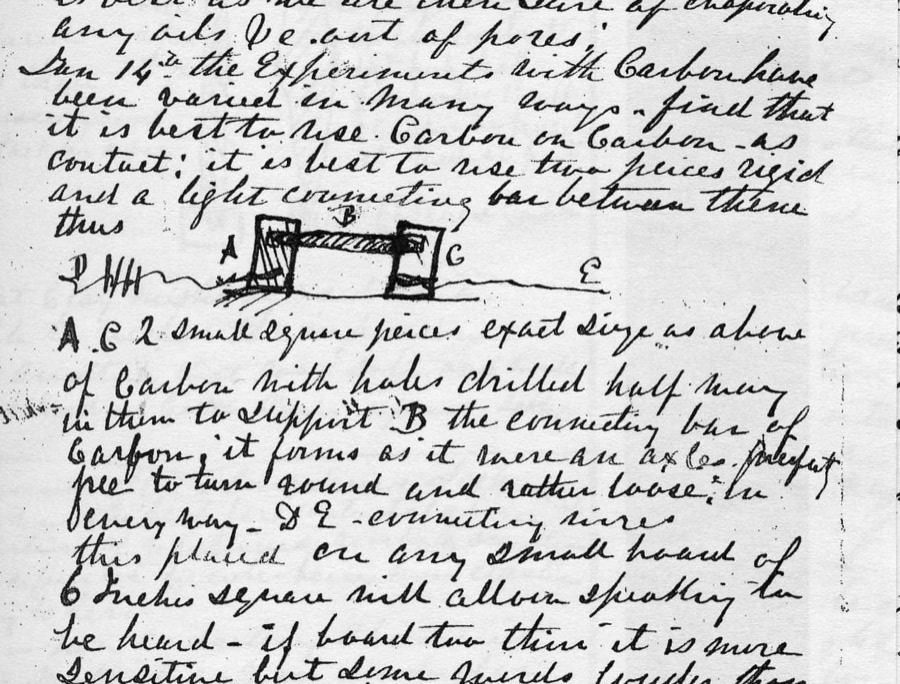 as we are then sure of evaporating
any oils &c. out of pores.
Jan 14th the Experiments with Carbon have
been varied in many ways - find that
it is best to use Carbon on Carbon - as
contact; it is best to use two peices rigid
and a light connecting bar between them
thus
B
A
C
D
E
A. C 2 small square peices exact size as above
of Carbon with holes drilled half way
in them to support B the connecting bar of
Carbon; it forms as it were an axles perfect
free to turn round and rather loose; in
every way - D E - connecting wires
this placed on any small board of
6 Inches square will allow speaking to
be heard - if board too thin it is more
sensitive but some words louder than